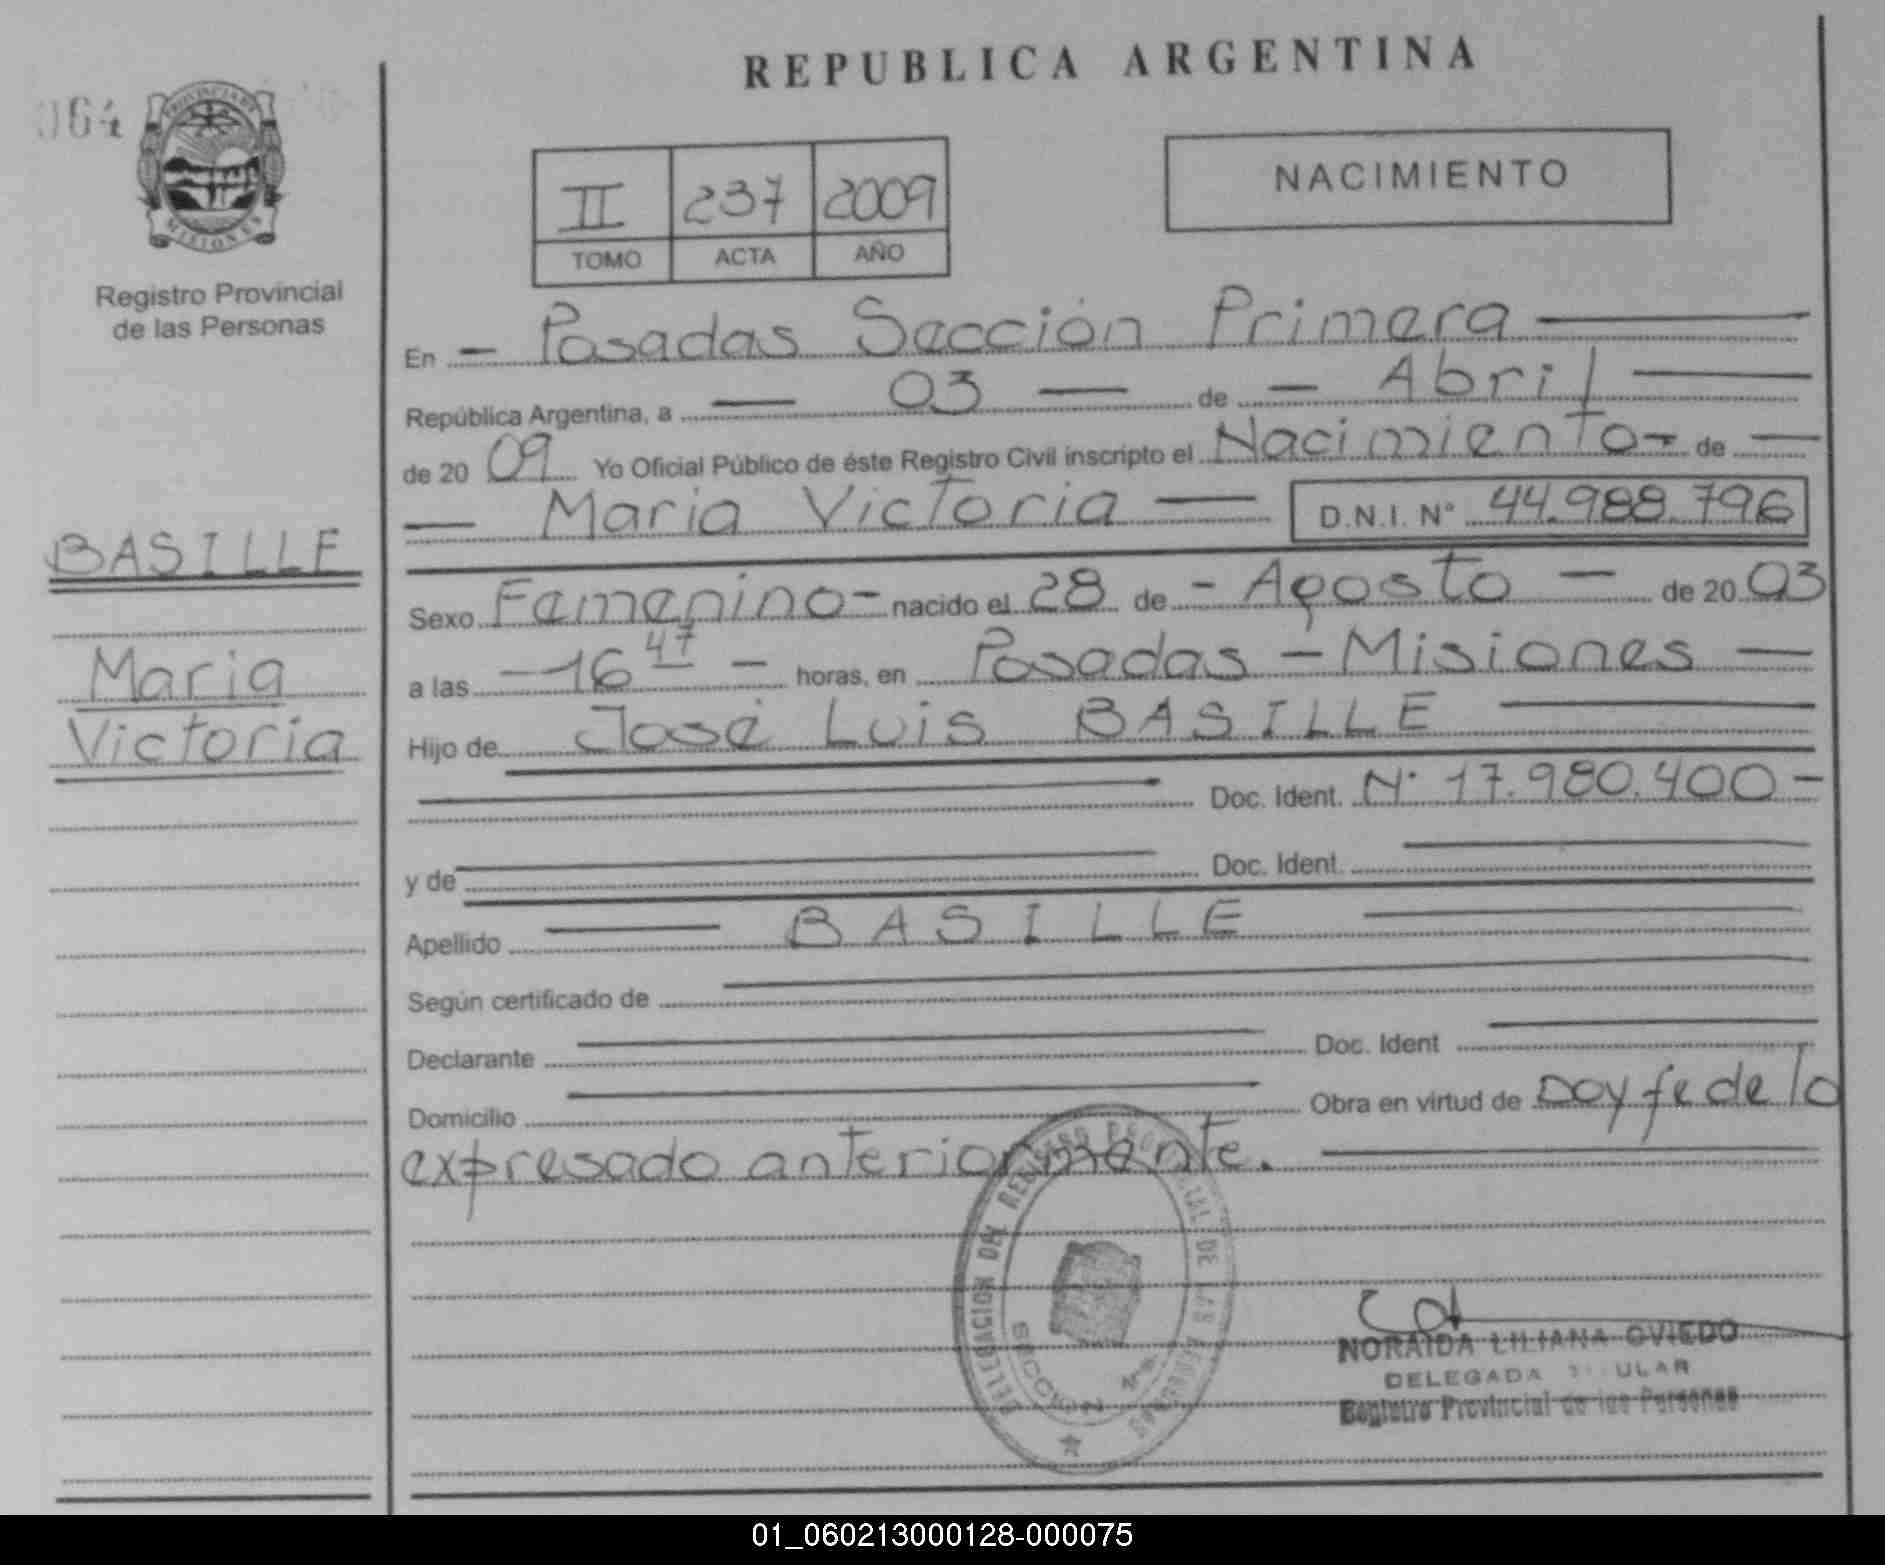 REPUBLICA ARGENTINA
064
PROVINCIA DE
MISIONES
Registro Provincial
de las Personas
II 237 2009
TOMO ACTA AÑO
NACIMIENTO
En - Posadas Sección Primera
República Argentina, a - 03 - de - Abril
de 20 09 Yo Oficial Público de éste Registro Civil inscripto el Nacimiento - de -
- Maria Victoria - D.N.I. Nº 44.988.796
BASILLE
Maria
Victoria
Sexo Femenino - nacido el 28 de - Agosto - de 20 03
a las - 16 47 - horas, en Posadas - Misiones -
Hijo de José Luis BASILLE
Doc. Ident. Nº 17.980.400 -
y de Doc. Ident.
Apellido BASILLE
Según certificado de
Declarante Doc. Ident
Domicilio Obra en virtud de Doy fe de lo
expresado anteriormente.
DELEGACION DEL REGISTRO PROVINCIAL DE LAS PERSONAS
SECCION
NORAIDA LILIANA OVIEDO
DELEGADA TITULAR
Registro Provincial de las Personas
01_060213000128-000075